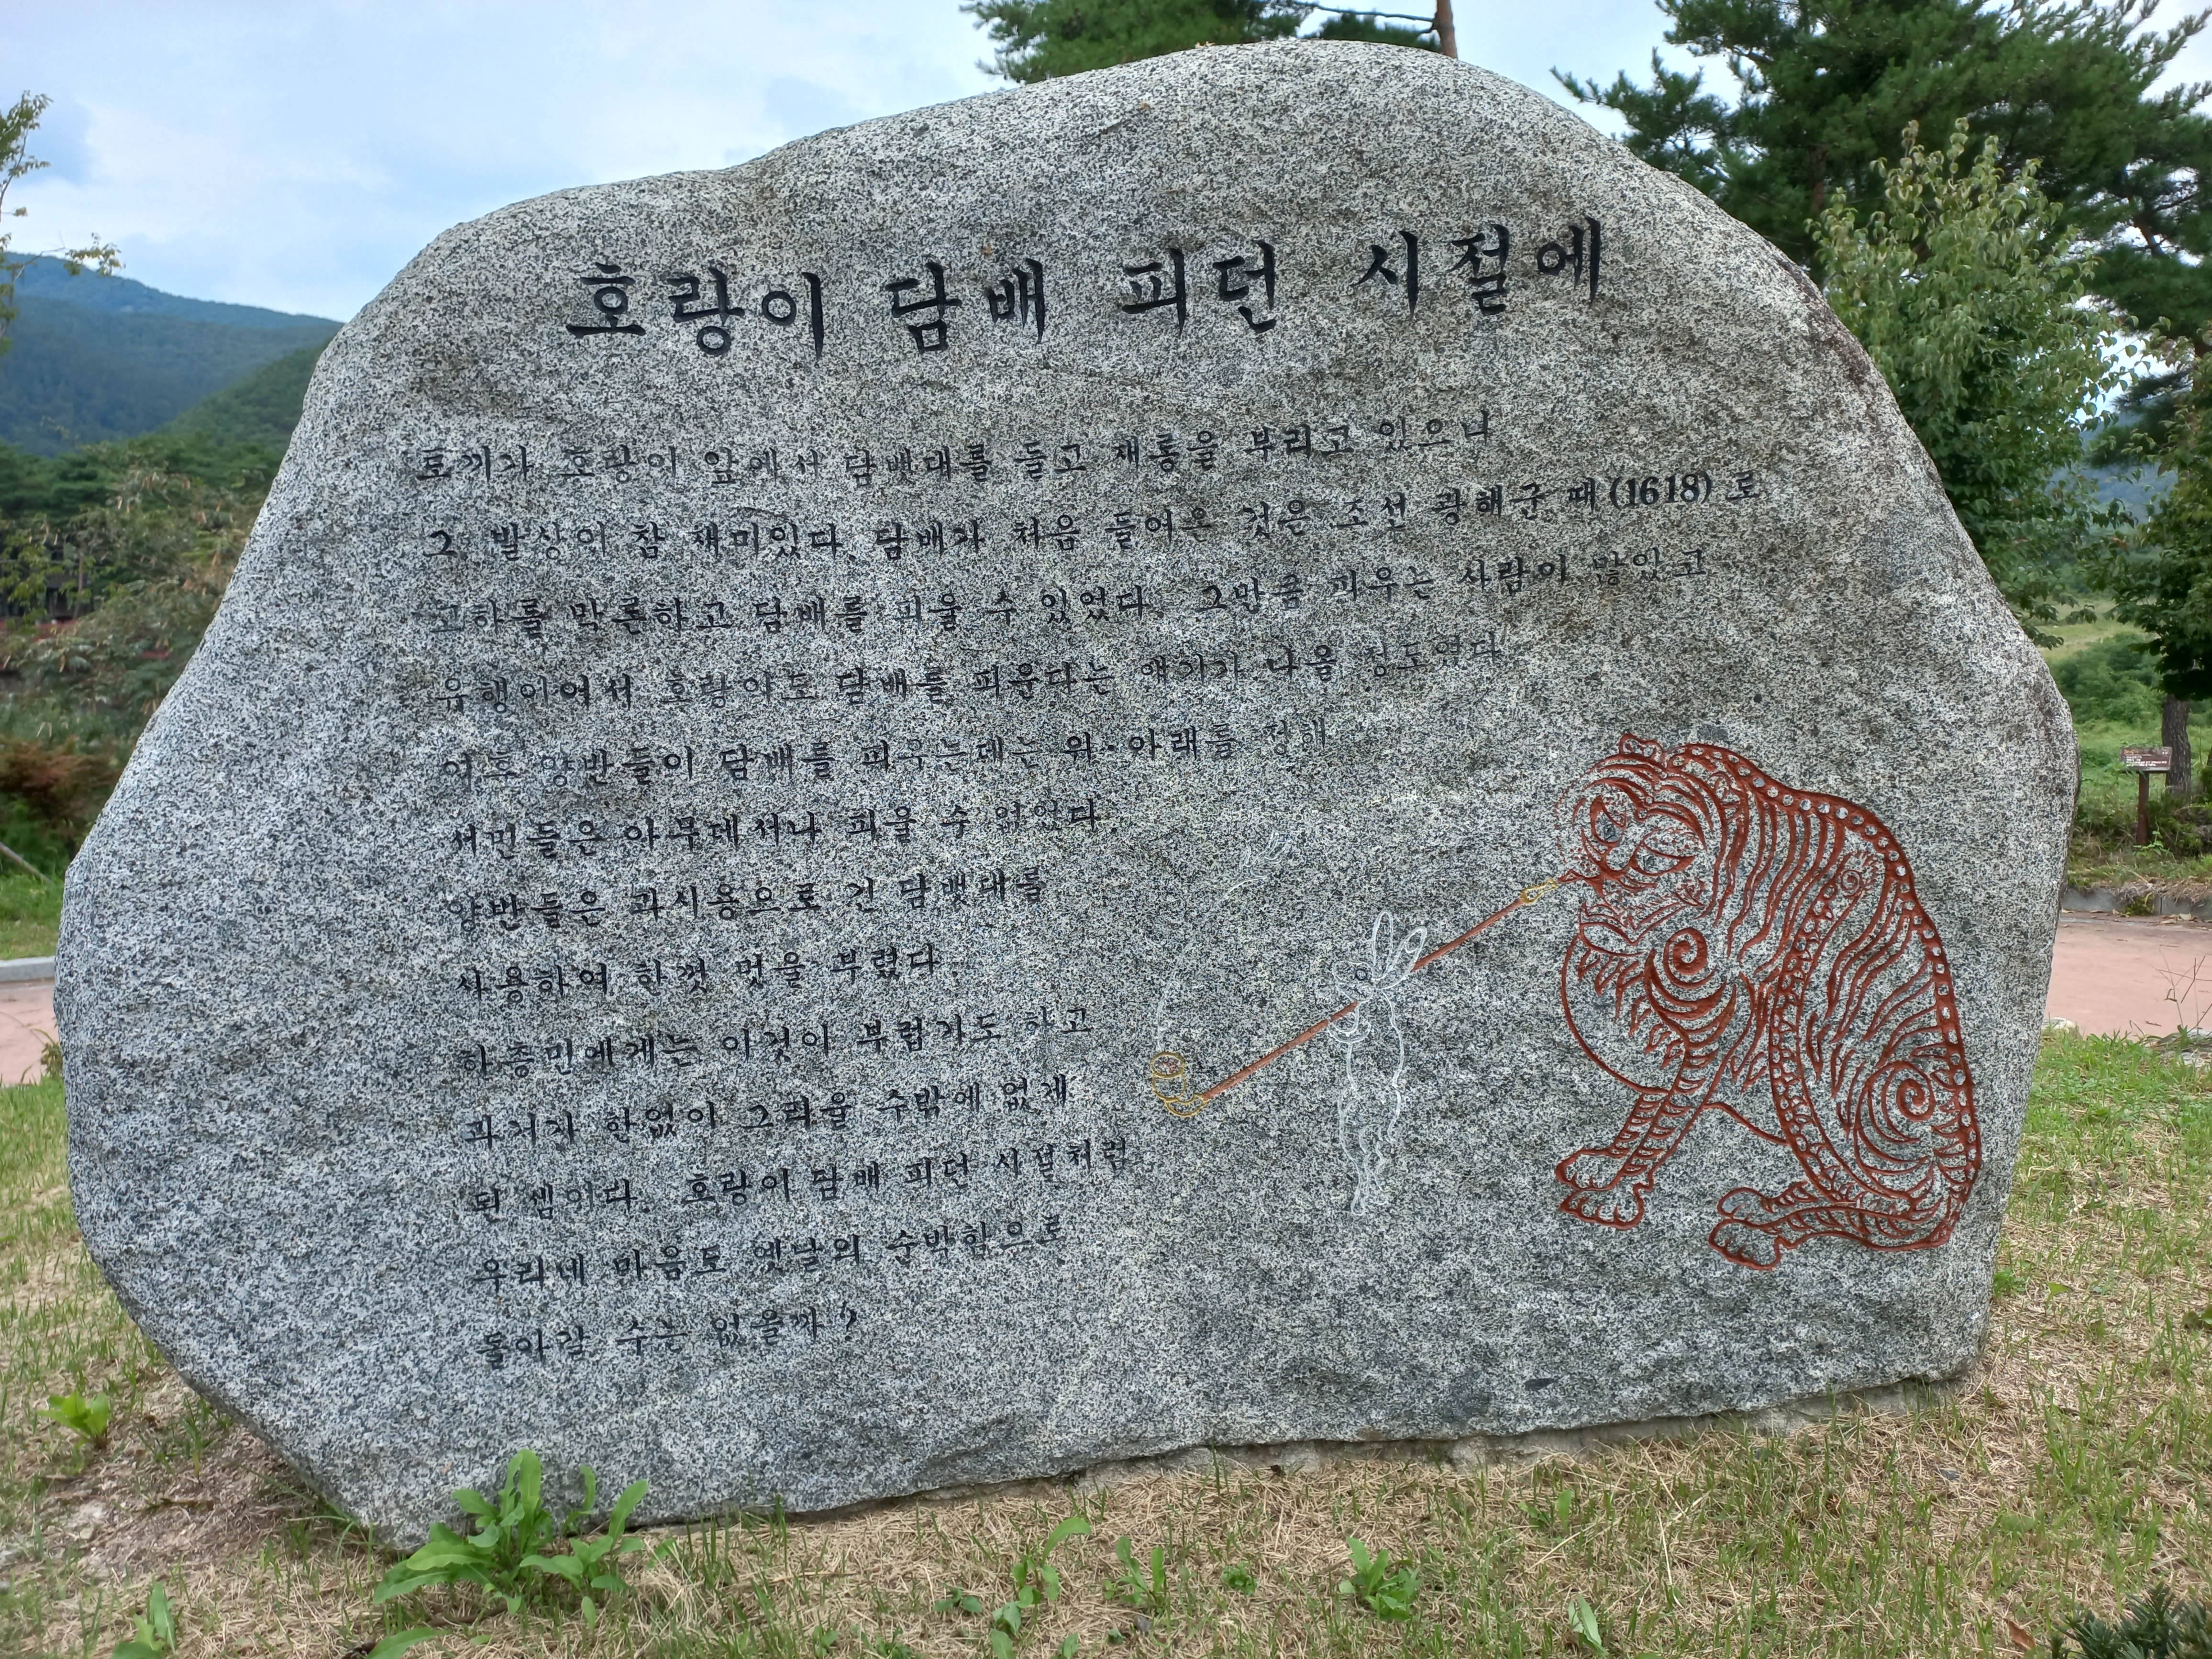 호랑이 담배 피던 시절에
토끼가 호랑이 앞에서 담뱃대를 들고 재롱을 부리고 있으니
그 발상이 참 재미있다. 담배가 처음 들어온 것은 조선 광해군 때(1618)로
고하를 막론하고 담배를 피울 수 있었다. 그만큼 피우는 사람이 많았고
유행이어서 호랑이도 담배를 피운다는 얘기가 나올 정도였다.
이후 양반들이 담배를 피우는데는 위·아래를 정해
서민들은 아무데서나 피울 수 없었다.
양반들은 과시용으로 긴 담뱃대를
사용하여 한껏 멋을 부렸다.
하층민에게는 이것이 부럽기도 하고
과거가 한없이 그리울 수밖에 없게
된 셈이다. 호랑이 담배 피던 시절처럼
우리네 마음도 옛날의 순박함으로
돌아갈 수는 없을까?